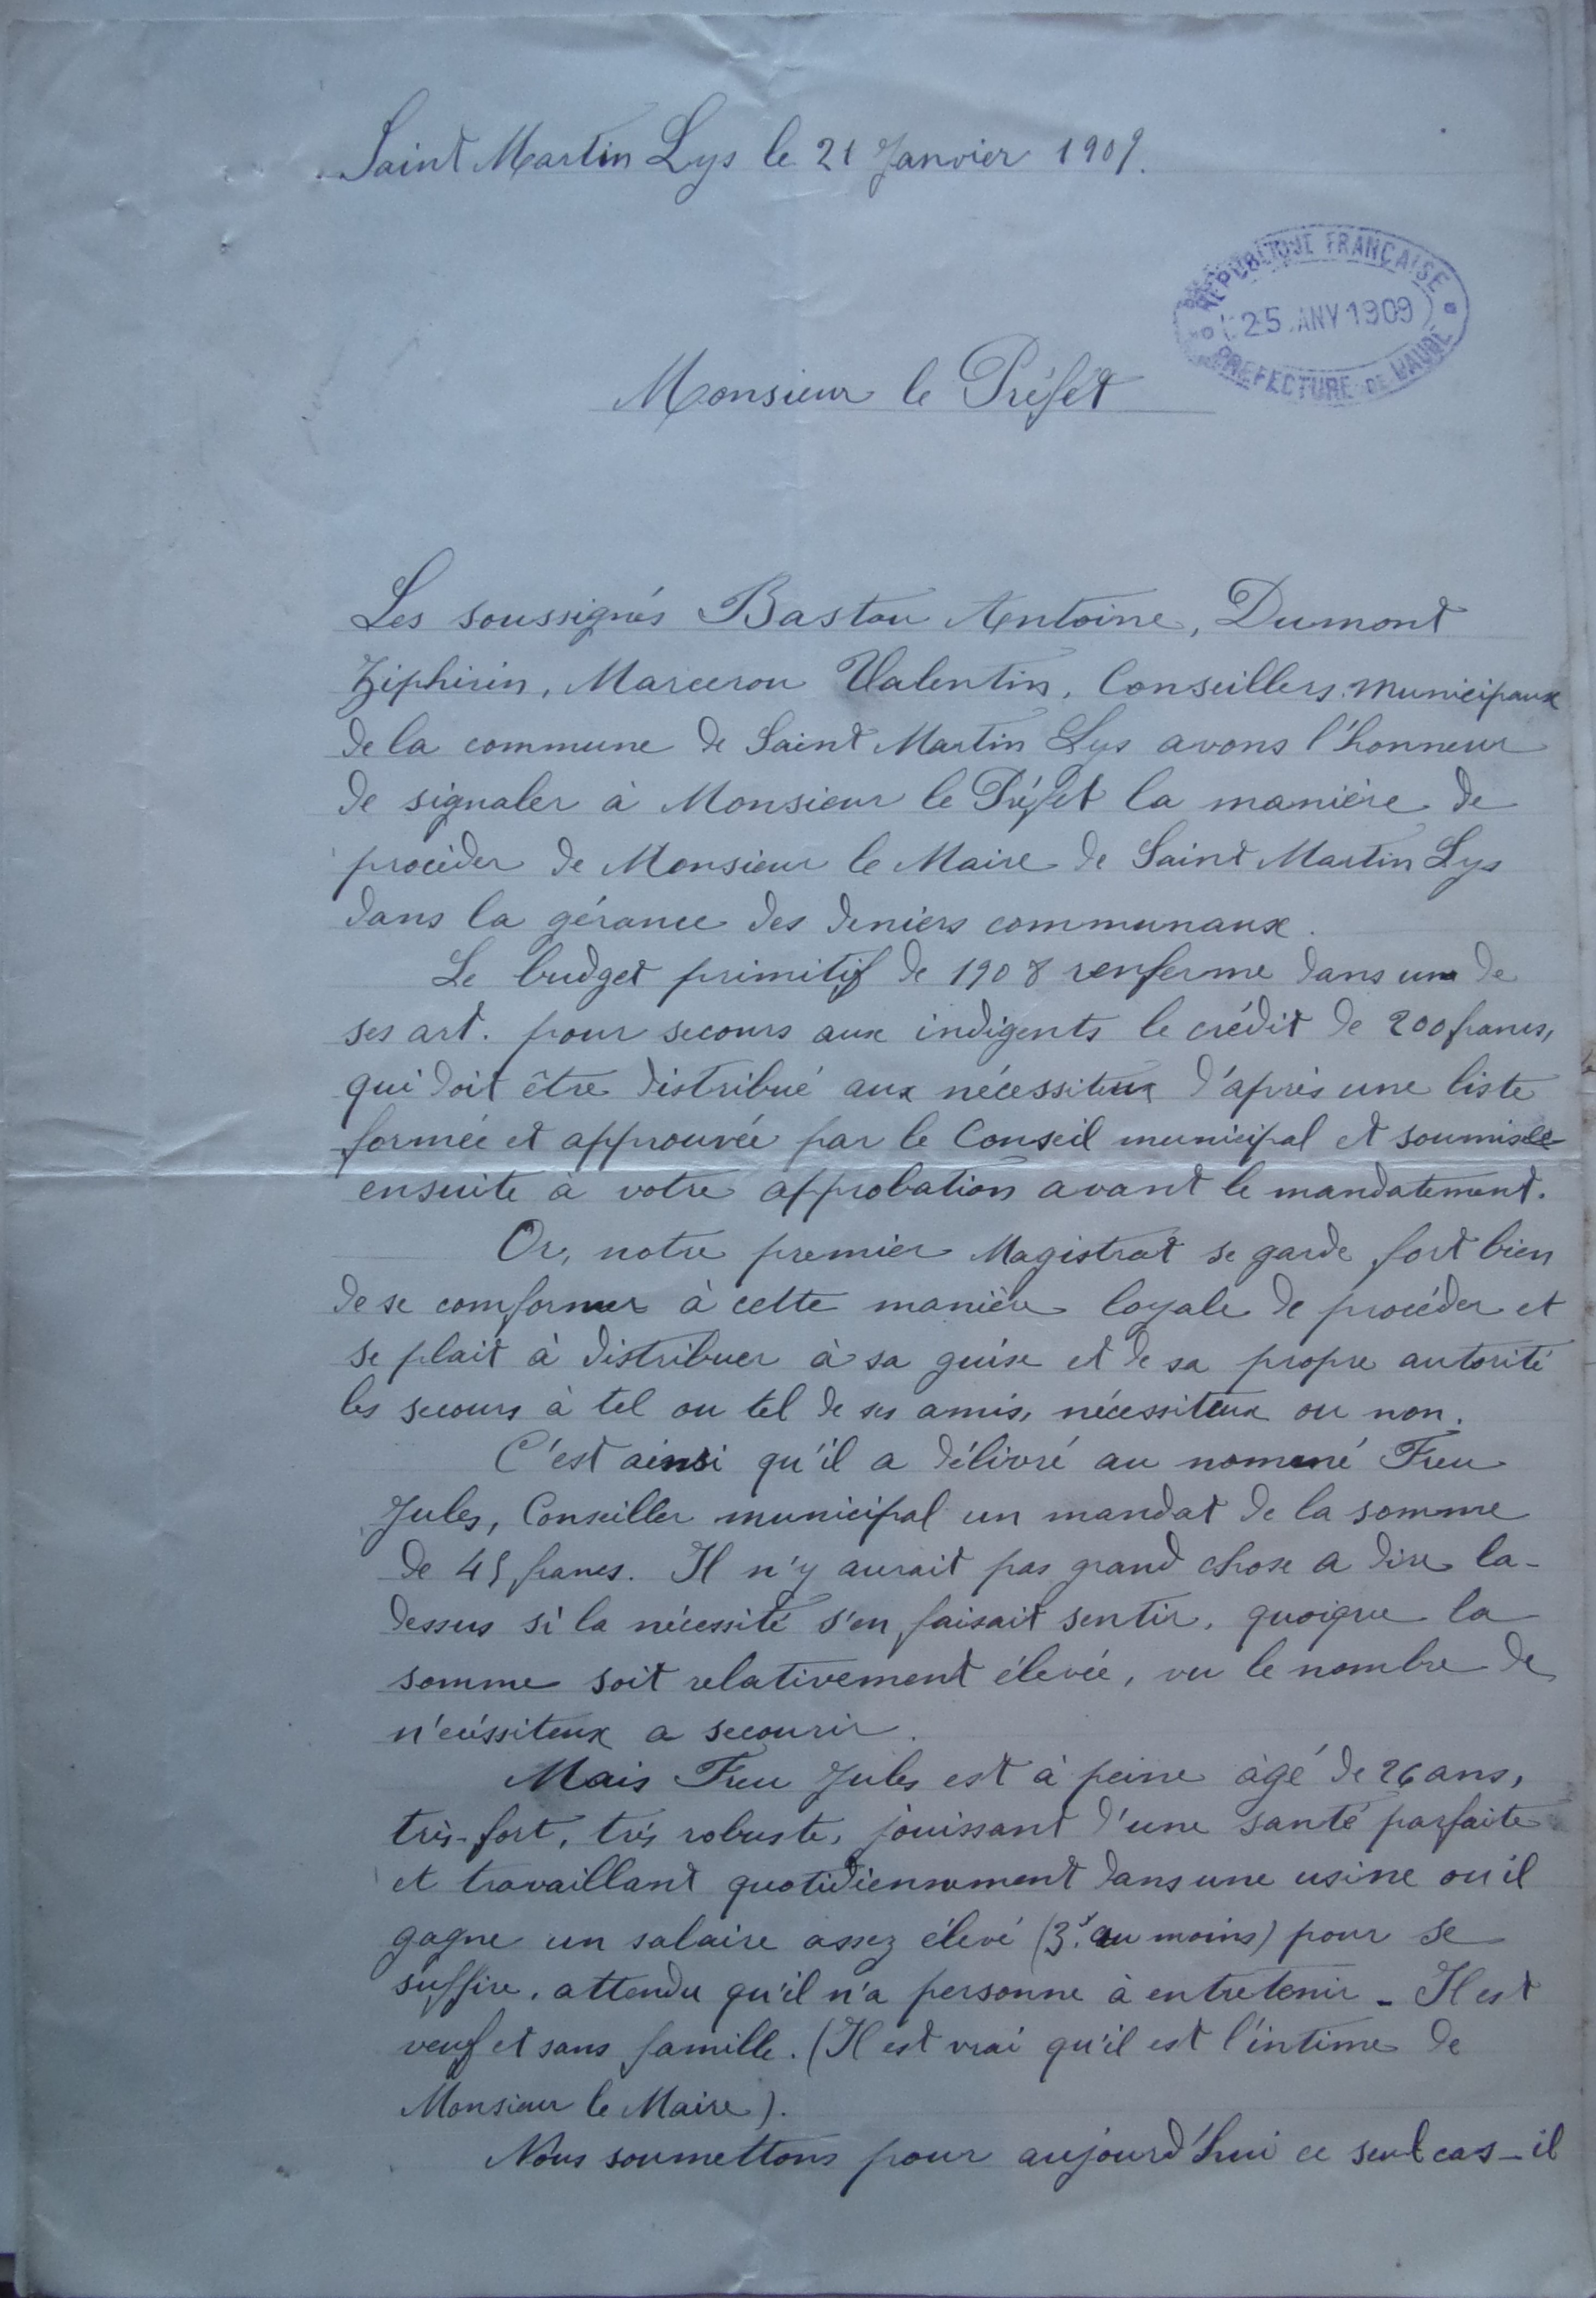 Saint Martin Lys le 21 Janvier 1909.
RÉPUBLIQUE FRANÇAISE
25 JANV 1909
PRÉFECTURE DE L'AUDE
Monsieur le Préfet
Les soussignés Bastou Antoine, Dumont
Ziphirin, Marceron Valentin, Conseillers municipaux
de la commune de Saint Martin Lys avons l'honneur
de signaler à Monsieur le Préfet la manière de
procéder de Monsieur le Maire de Saint Martin Lys
dans la gérance des deniers communaux.
Le budget primitif de 1908 renferme dans un de
ses art. pour secours aux indigents le crédit de 200 francs,
qui doit être distribué aux nécessiteux d'après une liste
formée et approuvée par le Conseil municipal et soumise
ensuite à votre approbation avant le mandatement.
Or, notre premier Magistrat se garde fort bien
de se comformer à cette manière loyale de procéder et
se plait à distribuer à sa guise et de sa propre autorité
les secours à tel ou tel de ses amis, nécessiteux ou non.
C'est ainsi qu'il a délivré au nommé Freu
Jules, Conseiller municipal un mandat de la somme
de 45 francs. Il n'y aurait pas grand chose a dire la-
dessus si la nécessité s'en faisait sentir, quoique la
somme soit relativement élevée, vu le nombre de
n'écéssiteux a secourir.
Mais Freu Jules est à peine agé de 26 ans,
très-fort, très robuste, jouissant d'une santé parfaite
et travaillant quotidiennement dans une usine ou il
gagne un salaire assez élevé (3f. au moins) pour se
suffire, attendu qu'il n'a personne à entretenir - Il est
veuf et sans famille. (Il est vrai qu'il est l'intime de
Monsieur le Maire).
Nous soumettons pour aujourd'hui ce seul cas - il